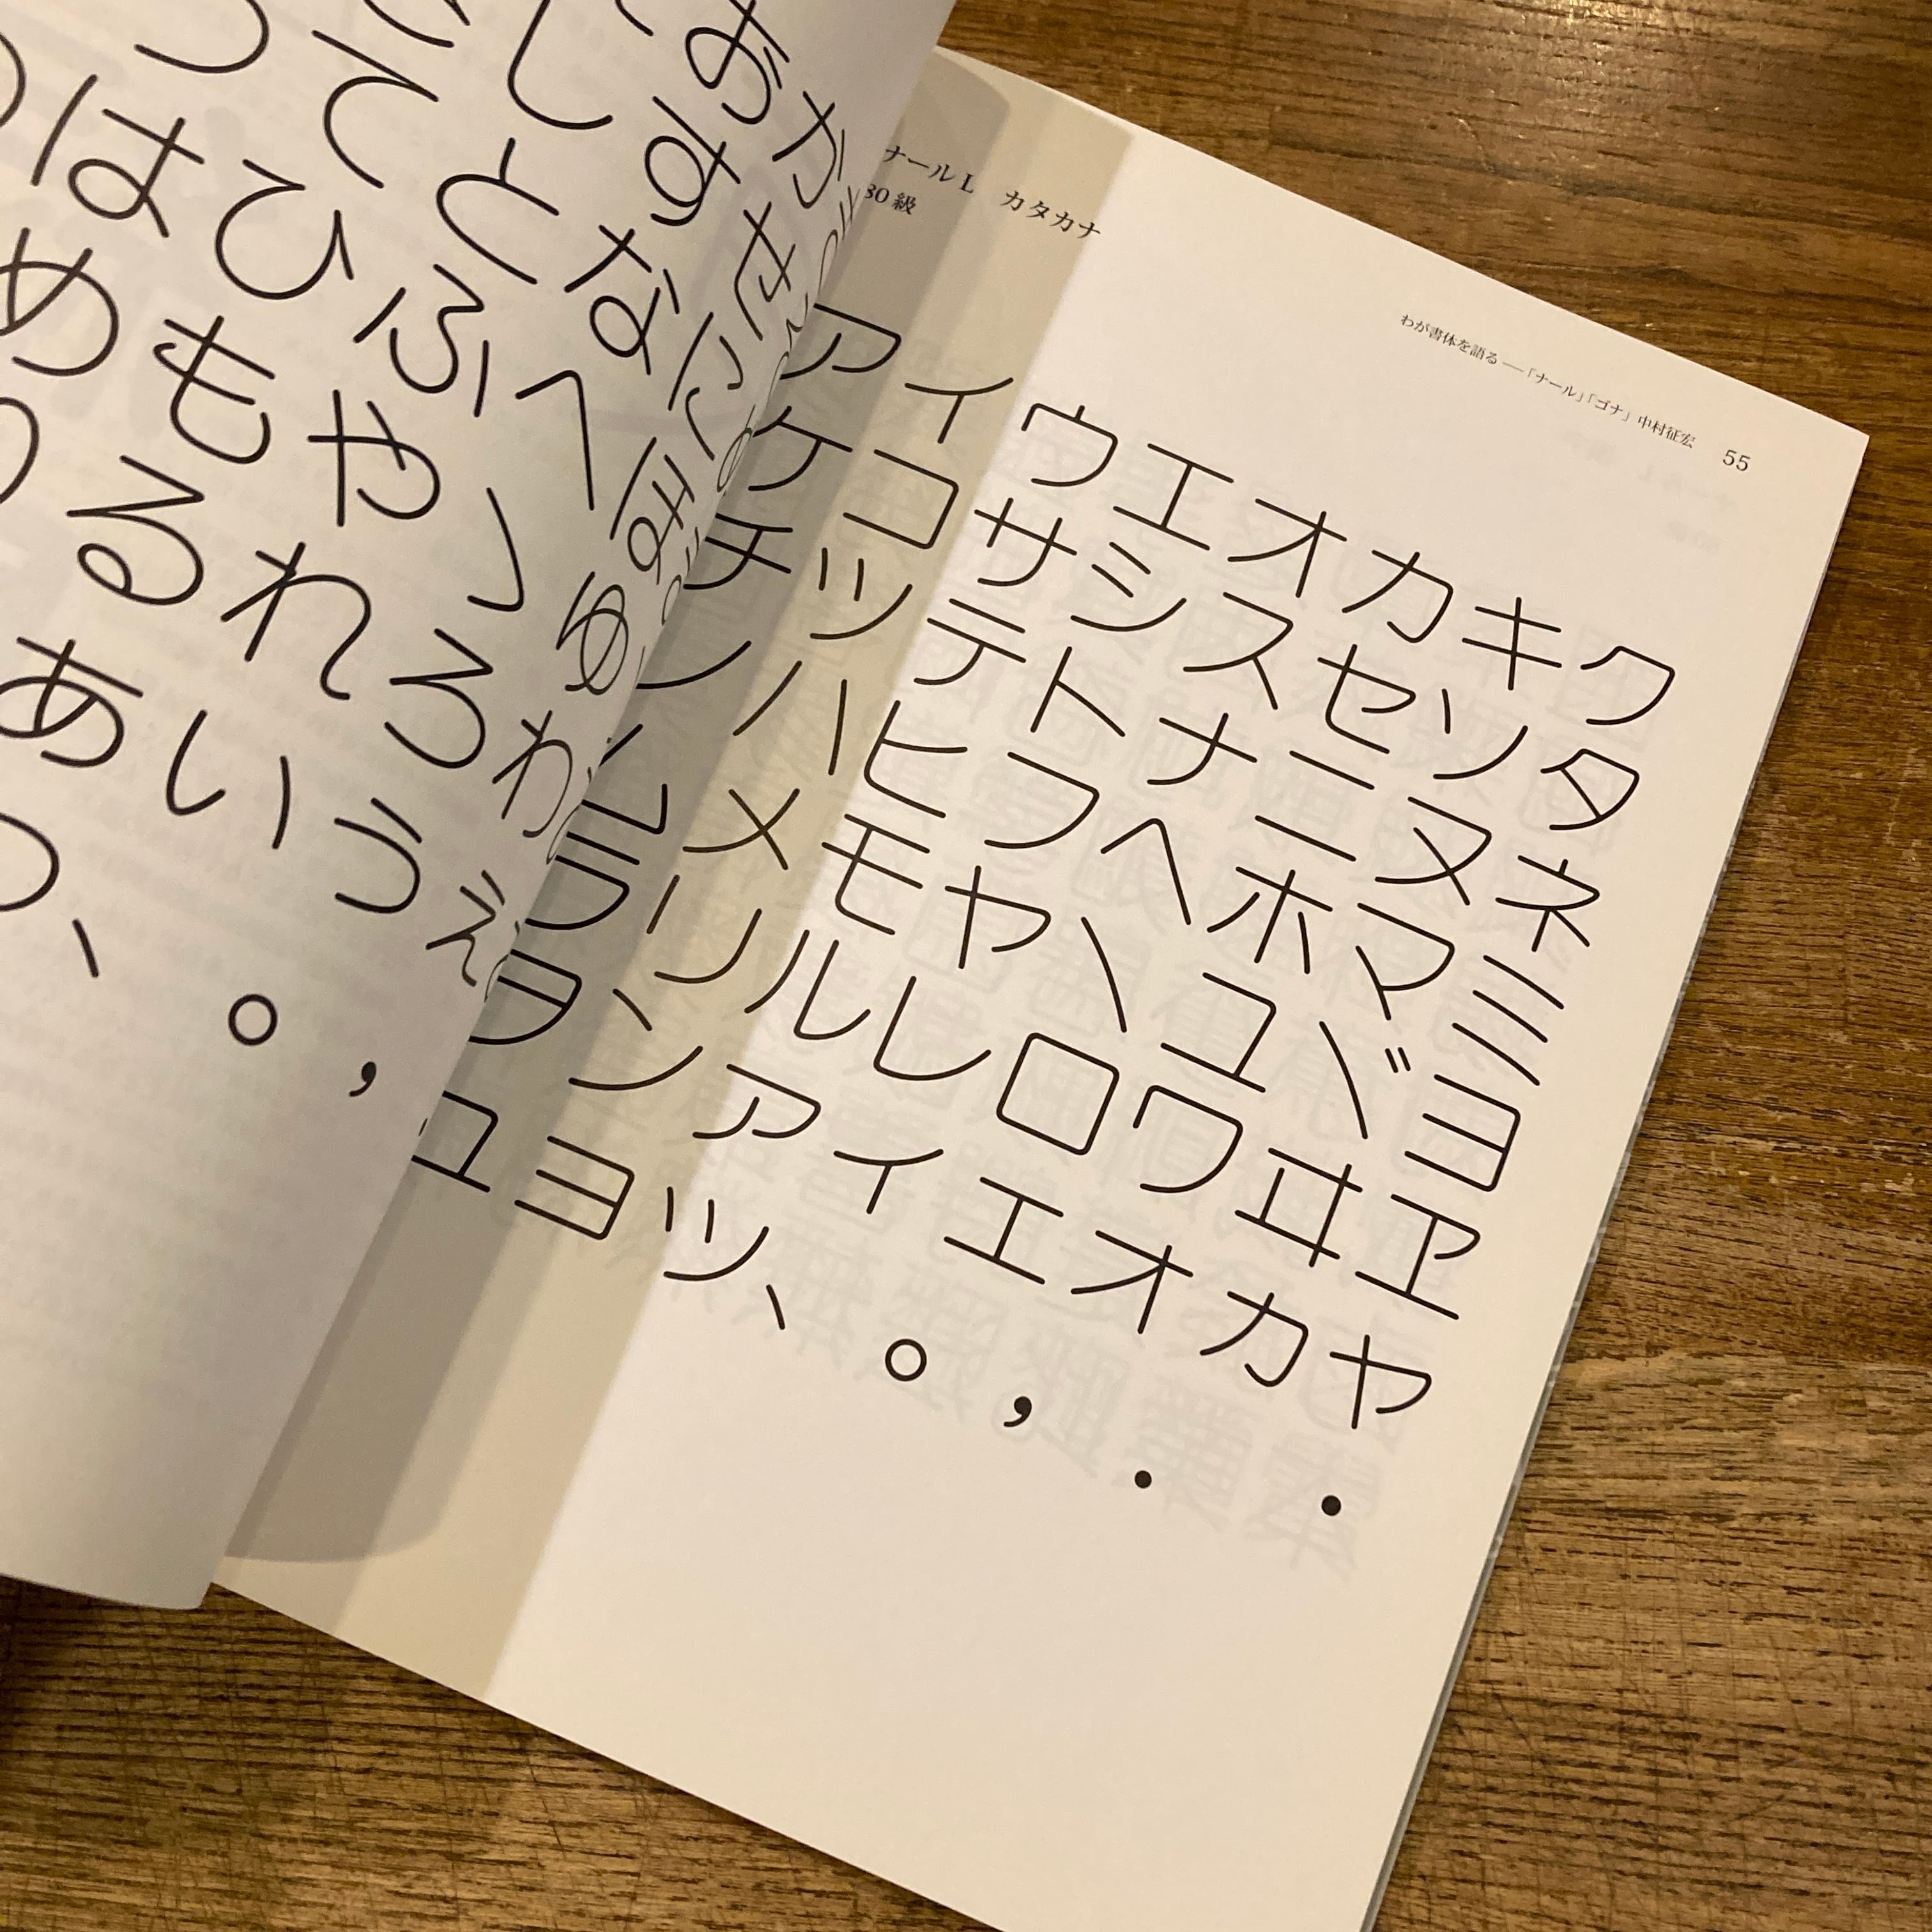 おか
しすせ
つてとなに
はひふへほ
めもやゝゆ
るれろわ
ぁぃぅぇ
っ、。，
ナールL　カタカナ
級
わが書体を語る──「ナール」「ゴナ」 中村征宏　55
アイウエオカキク
ケコサシスセソタ
チツテトナニヌネ
ノハヒフヘホマミ
ムメモヤヽユヾヨ
ラリルレロワヰヱ
ヲンァィェォヵャ
ュョッ、。，．・